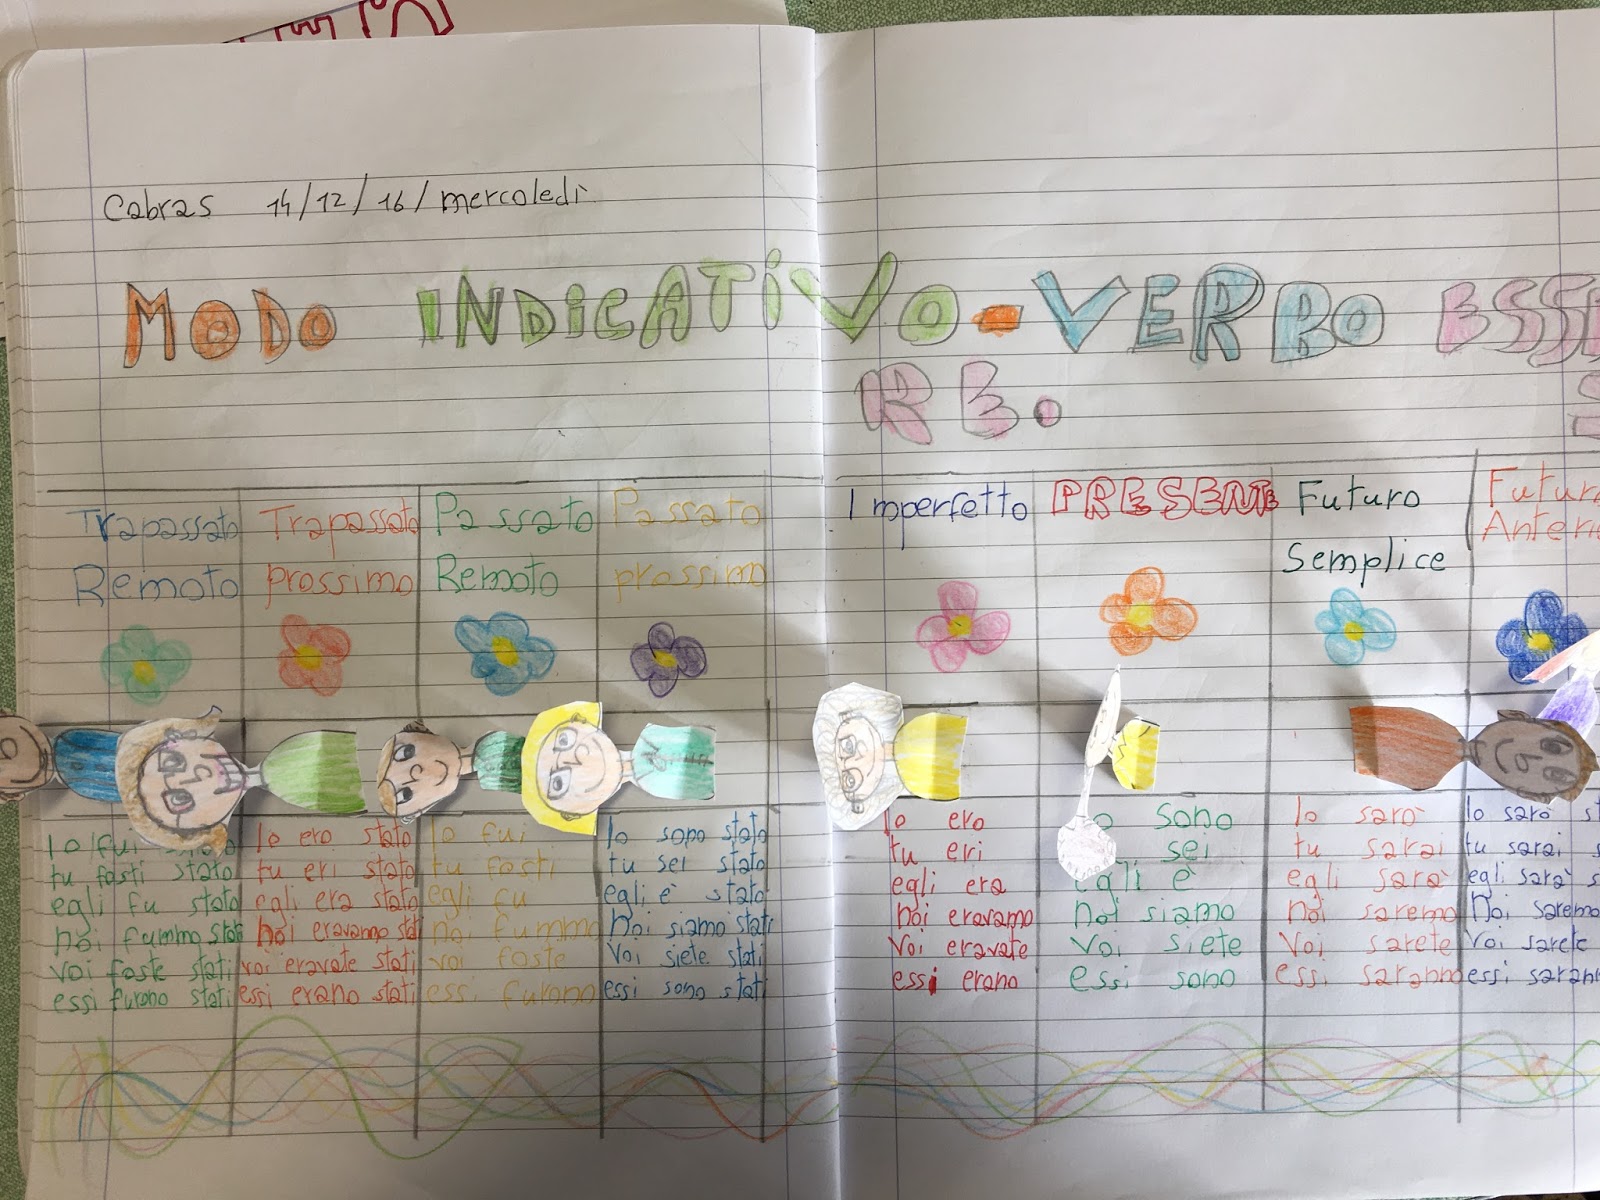 Cabras 14/12/16/mercoledì
MODO INDICATIVO-VERBO ESSE
RE.
Trapassato
Remoto
Trapassato
prossimo
Passato
Remoto
Passato
prossimo
Imperfetto
PRESENTE
Futuro
Semplice
Futuro
Anteri
Io fui stato
tu fosti stato
egli fu stato
noi fummo stati
voi foste stati
essi furono stati
Io ero stato
tu eri stato
egli era stato
noi eravamo stati
voi eravate stati
essi erano stati
Io fui
tu fosti
egli fu
noi fummo
voi foste
essi furono
Io sono stato
tu sei stato
egli è stato
noi siamo stati
voi siete stati
essi sono stati
Io ero
tu eri
egli era
noi eravamo
voi eravate
essi erano
sono
sei
egli è
noi siamo
voi siete
essi sono
Io sarò
tu sarai
egli sarà
noi saremo
voi sarete
essi saranno
Io sarò st
tu sarai s
egli sarà s
noi saremo
voi sarete
essi sarann